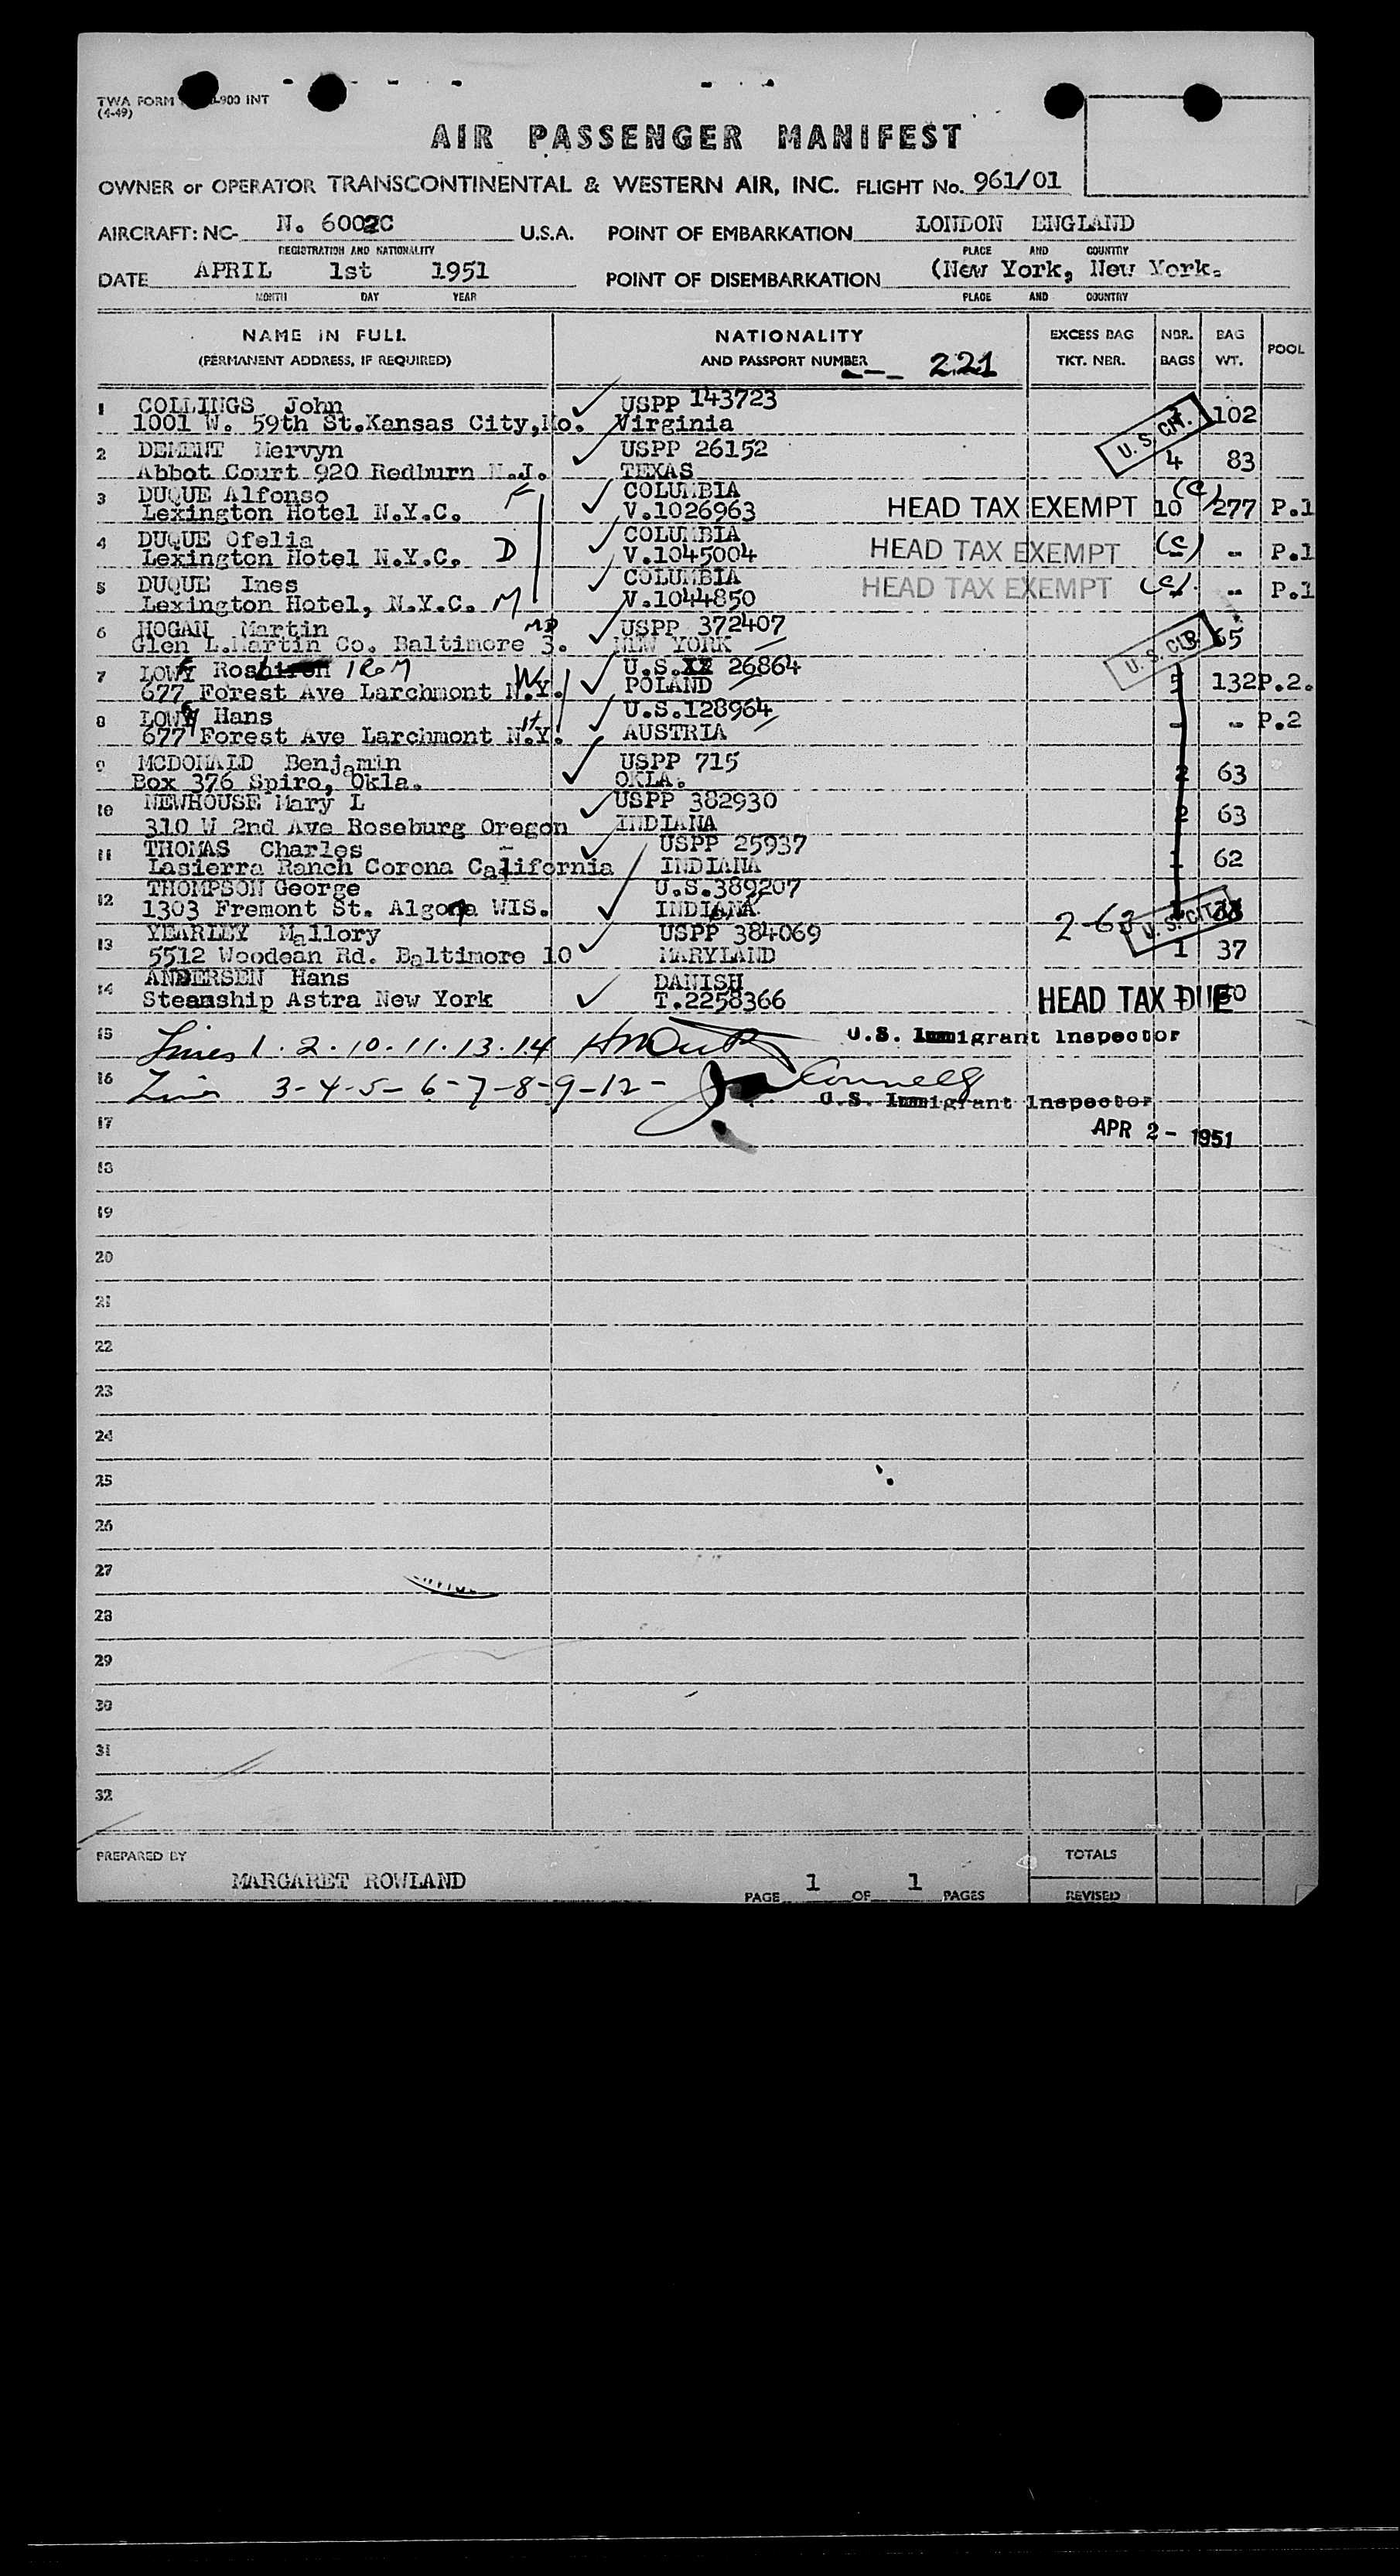 TWA FORM -900 INT
(4-49)
AIR PASSENGER MANIFEST
OWNER or OPERATOR TRANSCONTINENTAL & WESTERN AIR, INC. FLIGHT No. 961/01
AIRCRAFT: NC- N. 6002C U.S.A. POINT OF EMBARKATION LONDON ENGLAND
REGISTRATION AND NATIONALITY PLACE AND COUNTRY
DATE APRIL 1st 1951 POINT OF DISEMBARKATION (New York, New York.
MONTH DAY YEAR PLACE AND COUNTRY
NAME IN FULL NATIONALITY EXCESS BAG NBR. BAG POOL
(PERMANENT ADDRESS, IF REQUIRED) AND PASSPORT NUMBER 221 TKT. NBR. BAGS WT.
1 COLLINGS John USPP 143723 U.S. CIT. 102
1001 W. 59th St.Kansas City,Mo. Virginia
2 DEMENT Mervyn USPP 26152 4 83
Abbot Court 920 Redburn N.J. TEXAS
3 DUQUE Alfonso F COLUMBIA (C)
Lexington Hotel N.Y.C. V.1026963 HEAD TAX EXEMPT 10 277 P.1
4 DUQUE Ofelia COLUMBIA
Lexington Hotel N.Y.C. D V.1045004 HEAD TAX EXEMPT (C) - P.1
5 DUQUE Ines COLUMBIA HEAD TAX EXEMPT (C) - P.1
Lexington Hotel, N.Y.C. M V.1044850
6 HOGAN Martin MD USPP 372407 U.S. CIT. 65
Glen L.Martin Co. Baltimore 3. NEW YORK
7 LOWY U.S.XX 26864
677 Forest Ave Larchmont N.Y. W POLAND 5 132 P.2.
8 Hans U.S.128964 - - P.2
677 Forest Ave Larchmont N.Y. H AUSTRIA
9 MCDONALD Benjamin USPP 715 2 63
Box 376 Spiro, Okla. OKLA.
10 NEWHOUSE Mary L USPP 382930 2 63
310 W 2nd Ave Roseburg Oregon INDIANA
11 THOMAS Charles USPP 25937 1 62
Lasierra Ranch Corona California INDIANA
12 THOMPSON George U.S.389207
1303 Fremont St. Algoma WIS. INDIANA 2-63 U.S. CITZ.
13 YEARLEY Mallory USPP 384069
5512 Woodean Rd. Baltimore 10 MARYLAND 1 37
14 ANDERSEN Hans DANISH
Steamship Astra New York T.2258366 HEAD TAX DUE
15 Lines 1.2.10.11.13.14 U.S. Immigrant Inspector
16 Lines 3-4-5-6-7-8-9-12- Connelly
U.S. Immigrant Inspector
17 APR 2 - 1951
18
19
20
21
22
23
24
25
26
27
28
29
30
31
32
PREPARED BY TOTALS
MARGARET ROWLAND PAGE 1 OF 1 PAGES REVISED